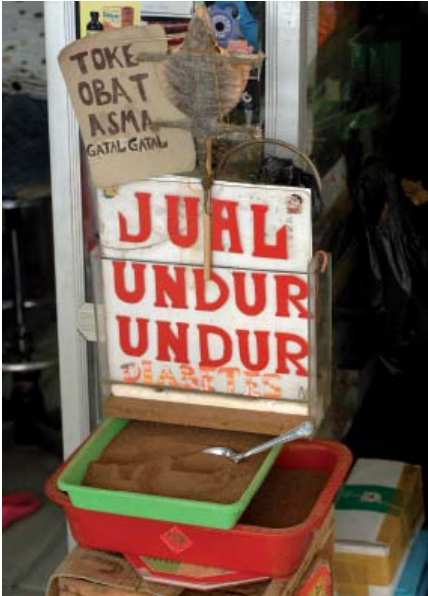 TOKE
OBAT
ASMA
GATAL GATAL
JUAL
UNDUR
UNDUR
DIABETES